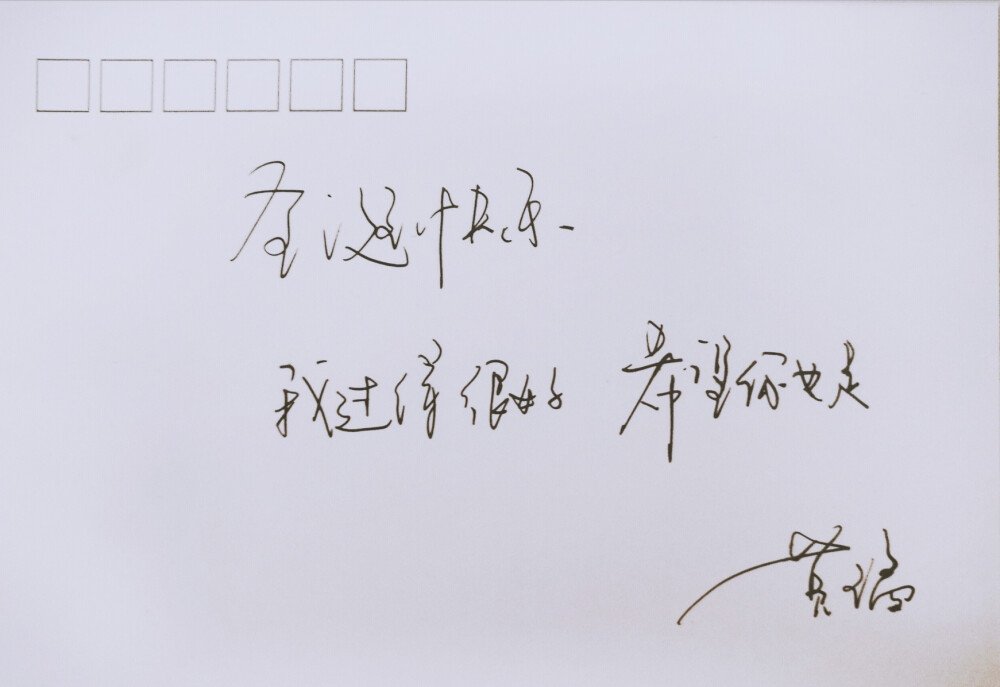 圣诞快乐
我过得很好 希望你也是
黄